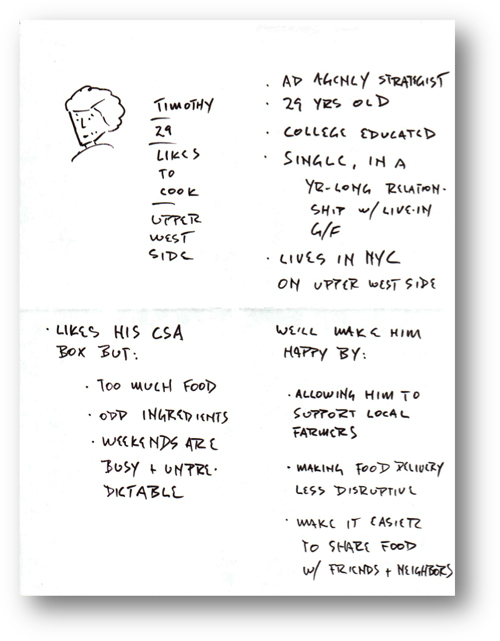 TIMOTHY
29
LIKES
TO
COOK
UPPER
WEST
SIDE
· AD AGENCY STRATEGIST
· 29 YRS OLD
· COLLEGE EDUCATED
· SINGLE, IN A
YR-LONG RELATION-
SHIP W/ LIVE-IN
G/F
· LIVES IN NYC
ON UPPER WEST SIDE
· LIKES HIS CSA
BOX BUT:
· TOO MUCH FOOD
· ODD INGREDIENTS
· WEEKENDS ARE
BUSY + UNPRE-
DICTABLE
WE'LL MAKE HIM
HAPPY BY:
· ALLOWING HIM TO
SUPPORT LOCAL
FARMERS
· MAKING FOOD DELIVERY
LESS DISRUPTIVE
· MAKE IT EASIER
TO SHARE FOOD
W/ FRIENDS + NEIGHBORS